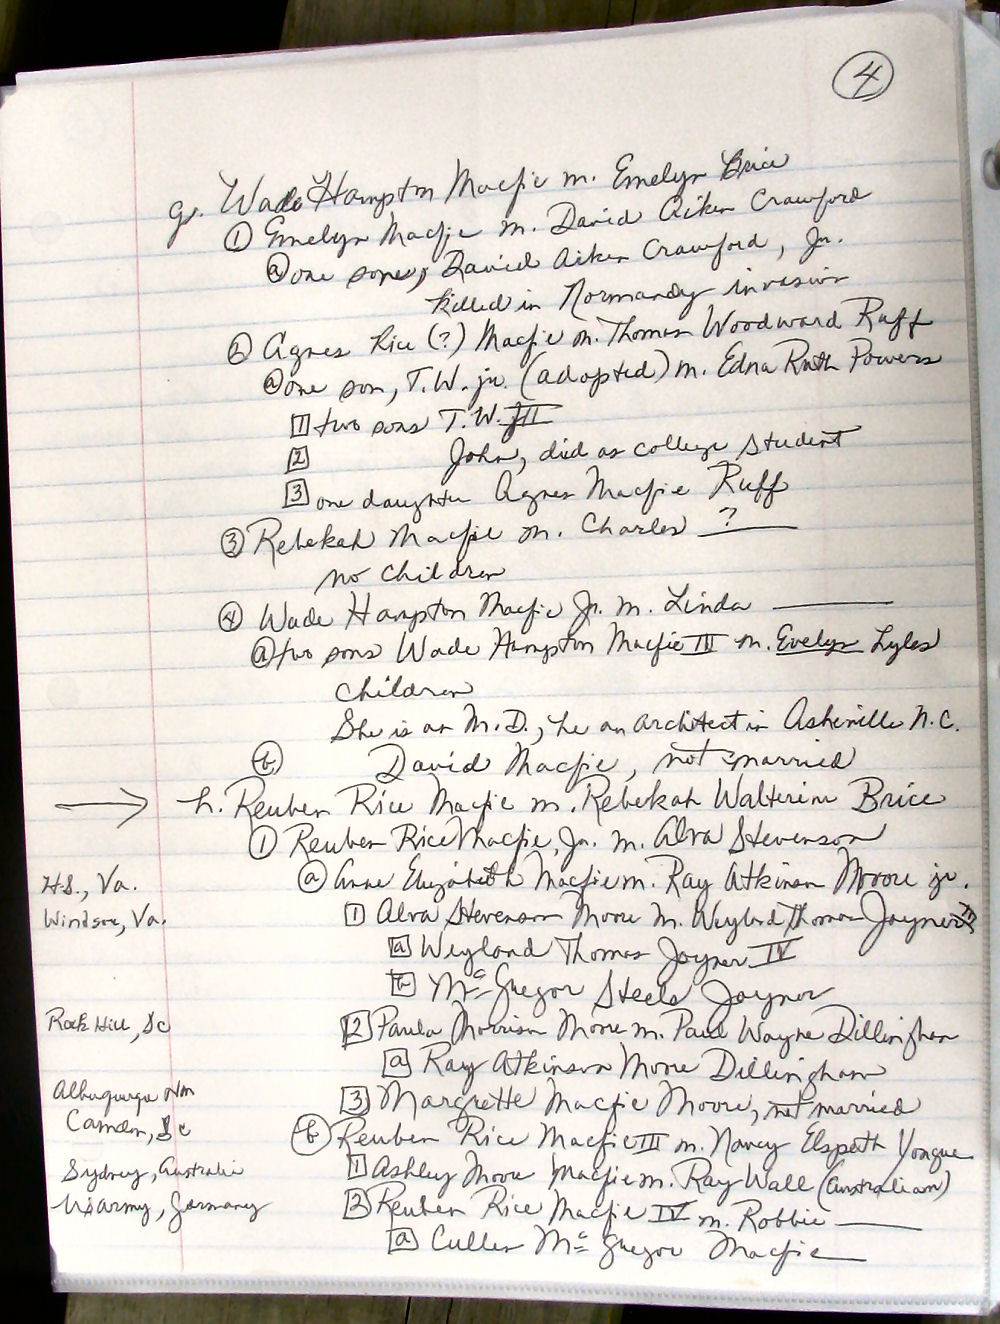 4
g. Wade Hampton Macfie m. Emelyn Brice
① Emelyn Macfie m. David Aiken Crawford
ⓐ one sone, David Aiken Crawford, Jr.
killed in Normandy invasion
② Agnes Rice (?) Macfie m. Thomas Woodward Ruff
ⓐ one son, T.W. jr. (adopted) m. Edna Ruth Powers
1 two sons T.W. III
2 John, died as college student
3 one daughter Agnes Macfie Ruff
③ Rebekah Macfie m. Charles ?
no children
④ Wade Hampton Macfie Jr. m. Linda
ⓐ two sons Wade Hampton Macfie III m. Evelyn Lyles
children
She is an M.D., he an architect in Asheville N.C.
ⓑ David Macfie, not married
→ h. Reuben Rice Macfie m. Rebekah Brice
① Reuben Rice Macfie, Jr. m. Alva Stevenson
H.S., Va. ⓐ Anne Elizabeth Macfie m. Ray Atkinson Moore jr.
Windsor, Va. 1 Alva Stevenson Moore m. Weylond Thomas Joyner III
a Weylond Thomas Joyner IV
b McGregor Steele Joyner
Rock Hill, SC 2 Paula Morrison Moore m. Paul Wayne Dillingham
a Ray Atkinson Moore Dillingham
Albuquerque NM 3 Margrette Macfie Moore, not married
Camden, SC ⓑ Reuben Rice Macfie III m. Nancy Elspeth Yongue
Sydney, Australia 1 Ashley Moore Macfie m. Ray Wall (Australian)
US army, Germany 2 Reuben Rice Macfie IV m. Robbie
a Cullen McGregor Macfie